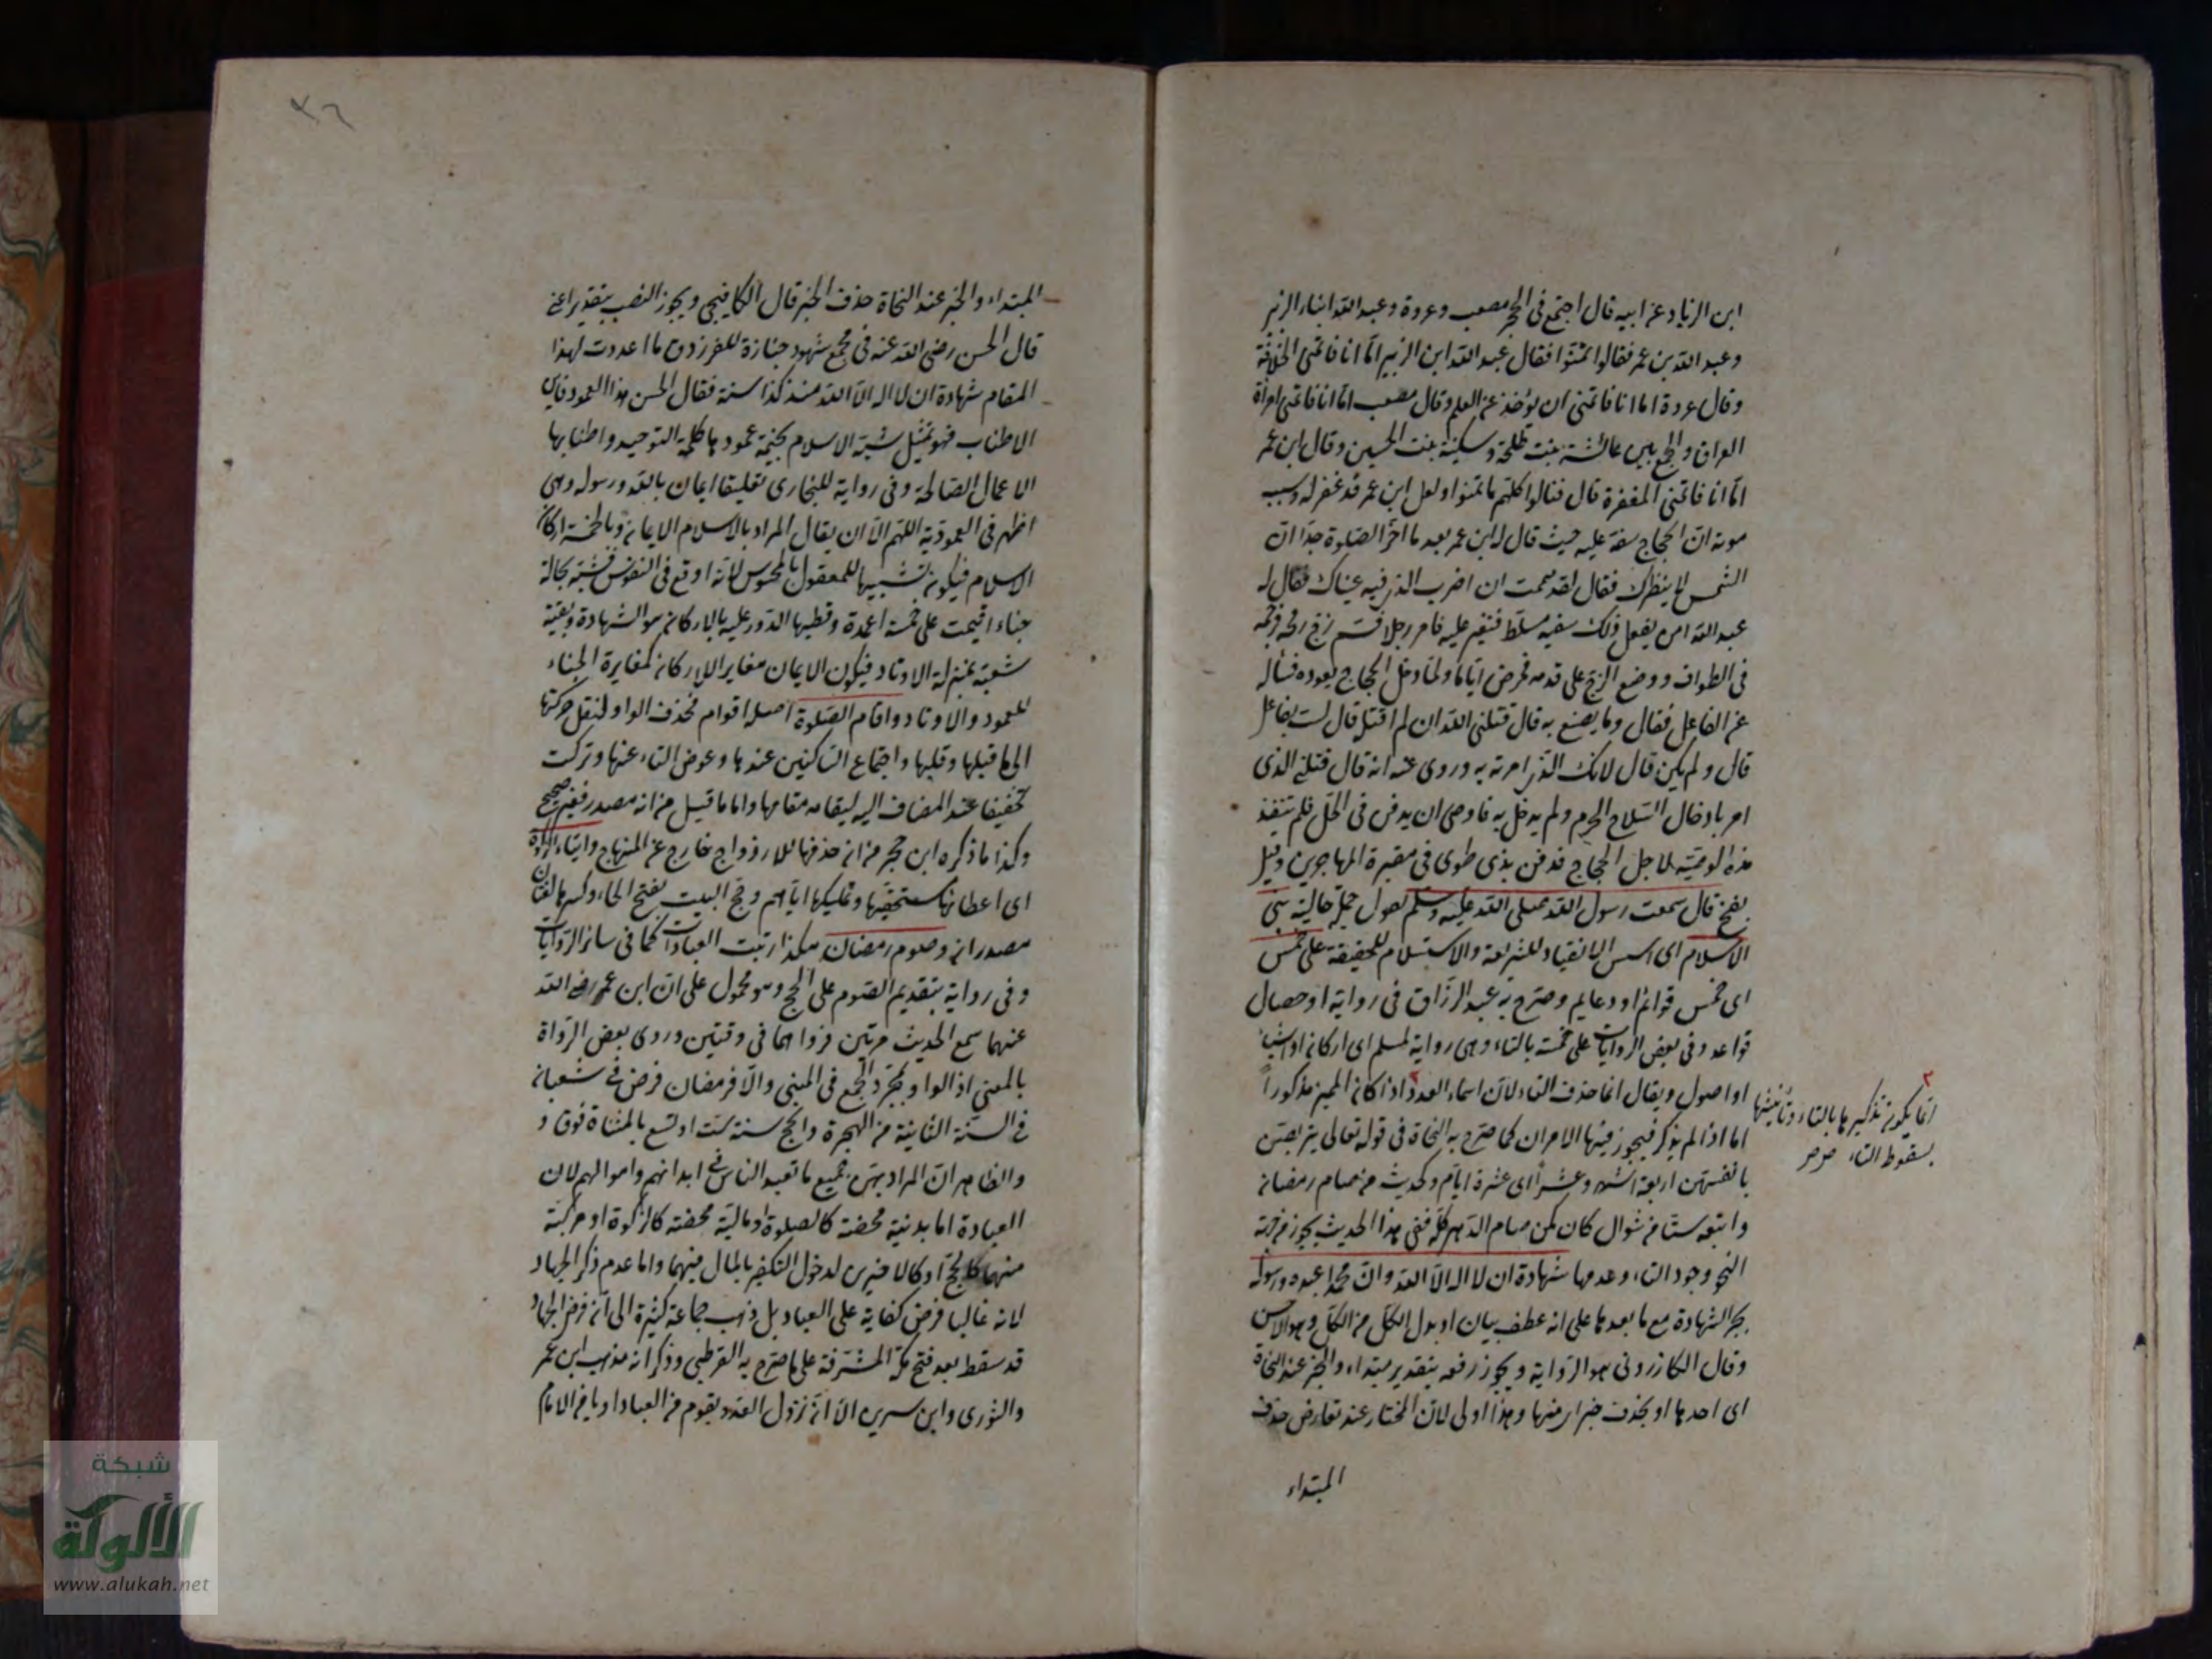 ابن الزناد عن ابيه قال اجتمع فى الحجر مصعب وعروة وعبد الله ابناء الزبير
وعبد الله بن عمر فقالوا تمنّوا فقال عبد الله ابن الزبير امّا انا فاتمنى الخلافة
وقال عروة اما انا فاتمنى ان يؤخذ عنى العلم وقال مصعب امّا انا فاتمنى امرأة
العراق والجمع بين عائشة بنت طلحة وسكينة بنت الحسين وقال ابن عمر
امّا انا فاتمنى المغفرة قال فنالوا كلهم ما تمنوا ولعل ابن عمر قد غفر له وسبب
موته ان الحجاج سفه عليه حيث قال له ابن عمر بعد ما اخّر الصلوة جدّا ان
الشمس لا ينظرك فقال لقد هممت ان اضرب الذى فيه عيناك فقال له
عبد الله ان يفعل ذلك سفيه مسلّط فتغير عليه فامر رجلا فسمّ زجّ رمحه وزحمه
فى الطواف ووضع الزج على قدمه فمرض ايّاما ولمّا دخل الحجاج يعوده فسأله
عن الفاعل فقال وما يصنع به قال قتلنى الله ان لم اقتله قال لست بفاعل
قال ولم يكن قال لانك الذى امرته به وروى عنه انه قال قتلنى الذى
امر بادخال السّلاح الحرم ولم يدخل به فاوصى ان يدفن فى الحلّ فلم تنفذ
هذه الوصيّة لاجل الحجاج فدفن بذى طوى فى مقبرة المهاجرين وقيل
بفخ قال سمعت رسول الله صلى الله عليه وسلم يقول جملة حالية بنى
الاسلام اى اسس الانقياد للشريعة والاستسلام للحقيقة على خمس
اى خمس قوائم او دعايم وصرّح به عبد الرزّاق فى رواية او خصال
قواعد وفى بعض الروايات على خمسة بالتاء وهى رواية لمسلم اى اركان او اشياء
او اصول ويقال انما حذف التاء لان اسماء العدد ٢ اذا كان المميز مذكوراً
اما اذا لم يذكر فيجوز فيها الامران كما صرّح به النحاة فى قوله تعالى يتربصن
بانفسهن اربعة اشهر وعشراً اى عشرة ايّام وكحديث من صام رمضان
واتبعه ستّا من شوال كان كمن صام الدّهر كلّه ففى هذا الحديث يجوز من جهة
النحو وجود التاء وعدمها شهادة ان لا اله الا الله وان محمدا عبده ورسوله
بجر الشهادة مع ما بعدها على انه عطف بيان او بدل الكلّ من الكلّ وهو الاحسن
وقال الكازرونى هو الرّواية ويجوز رفعه بتقدير مبتداء والخبر عند النحاة
اى احدها او بحذف خبر اى منها وهذا اولى لان المختار عند تعارض حذف
المبتداء
٢
انما يكون تذكيرها بالتاء وتأنيثها
بسقوط التاء صح صح
٤٦
المبتداء والخبر عند النحاة حذف الخبر قال الكافيجى ويجوز النصب بتقدير اعنى
قال الحسن رضى الله عنه فى مجمع شهود جنازة للفرزدق ما اعددت لهذا
المقام شهادة ان لا اله الا الله منذ كذا سنة فقال الحسن هذا العمود فاين
الاطناب فهو تمثيل شبّه الاسلام بخيمة عمودها كلمة التوحيد واطنابها
الاعمال الصالحة وفى رواية للبخارى تعليقا ايمان بالله ورسوله وهى
اظهر فى العمودية اللهم الا ان يقال المراد بالاسلام الايمان وبالخمسة اركان
الاسلام فيكون تشبيها للمعقول بالمحسوس لانه اوقع فى النفوس فشبّه بحالة
خباء اقيمت على خمسة اعمدة وقطبها الدّور عليه بالاركان هو الشهادة وبقيّة
شعبه بمنزلة الاوتاد فيكون الايمان مغاير اللاركان كمغايرة الخباء
للعمود والاوتاد واقام الصّلوة اصله اقوام فحذف الواو لنقل حركتها
الى ما قبلها وقلبها واجتماع السّاكنين عندها وعوض التاء عنها وتركت
تخفيفا عند المضاف اليه ليقامه مقامها واما ما قيل من انه مصدر فغير صحيح
وكذا ما ذكره ابن حجر من ان حذفها للازدواج خارج عن المنهاج وايتاء الزكوة
اى اعطائها مستحقيها وتمليكها ايّاهم وحج البيت بفتح الحاء وكسرها لغتان
مصدران وصوم رمضان هكذا رتبت العبادات كما فى سائر الرّوايات
وفى رواية بتقديم الصّوم على الحج وهو محمول على ان ابن عمر رضى الله
عنهما سمع الحديث مرتين فرواهما فى وقتين وروى بعض الرّواة
بالمعنى اذ الواو لمجرّد الجمع فى المبنى والّا فرمضان فرض فى شعبان
فى السّنة الثانية من الهجرة والحج سنة ست او تسع بالمثناة فوق و
والظاهر ان المراد بهن جميع ما تعبد الناس فى ابدانهم واموالهم لان
العبادة اما بدنية محضة كالصلوة او ماليّة محضة كالزكوة او مركبة
منهما كالحجّ او كالاخيرين لدخول التكفير بالمال فيهما واما عدم ذكر الجهاد
لانه غالبا فرض كفاية على العباد بل ذهب جماعة كثيرة الى انّ فرض الجهاد
قد سقط بعد فتح مكّة المشرّفة على ما صرّح به القرطبى وذكر انه مذهب ابن عمر
والثورى وابن سيرين الّا ان نزول العدو بقوم من العباد او يامر الامام
شبكة
الألوكة
www.alukah.net